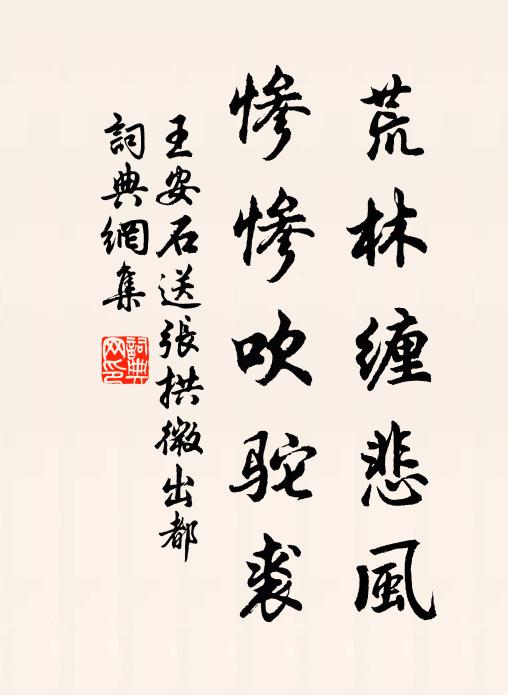 荒林缠悲風
惨惨吹驼裘
王安石送張拱微出都
詞典網集
詞典
网印